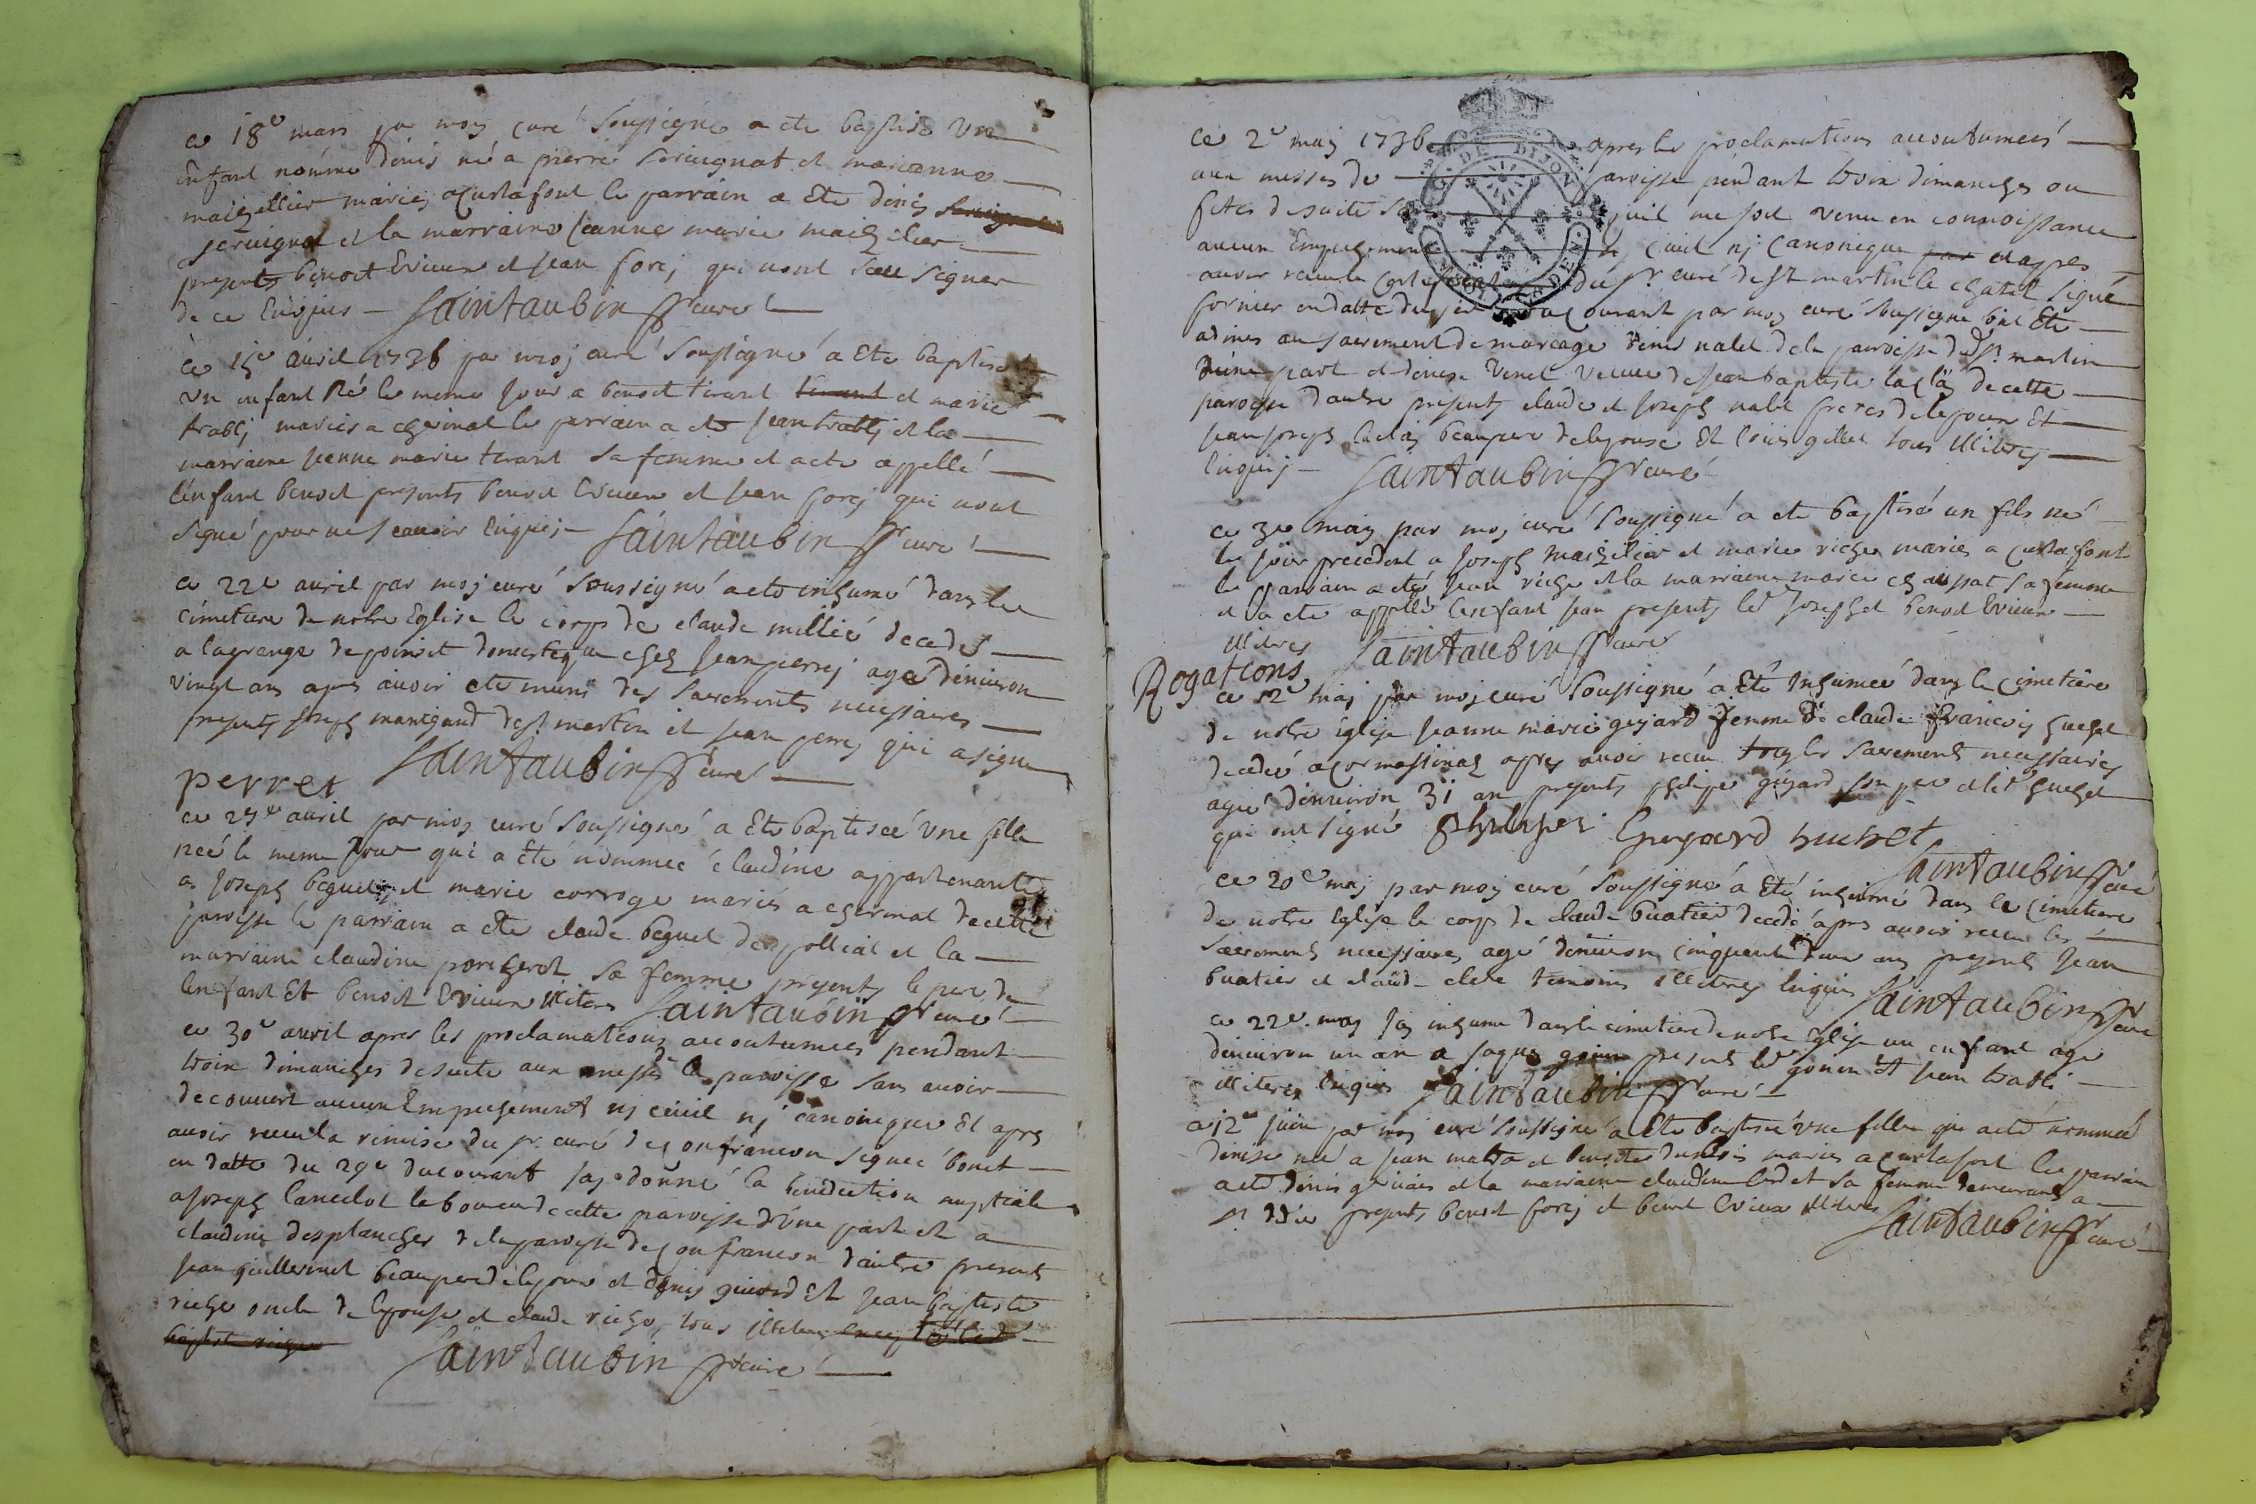 ce 18e mars par moy curé soussigné a ete baptisé un
enfant nommé denis né a pierre servignat et marianne
maizellier mariés a curtafont le parrain a ete denis
servignat et la marraine jeanne marie maizilier
presents benoit Evieux et jean forej qui nont sceu signer
de ce Enquis Saintaubin ptre curé
ce 15e avril 1736 par moj curé soussigné a ete baptisé
un enfant né le meme jour a benoit tirand et marie
trablj mariés a cherinal le parrain a ete jean trablj et la
marraine jeanne marie tirand sa femme et a ete appellé
lenfant benoit presents benoit Evieux et jean forej qui nont
signé pour ne scavoir Enquis Saintaubin ptre curé
ce 22e avril par moj curé soussigné a ete inhumé dans le
cimetiere de notre Eglise le corps de claude millié decedé
a lagrange de poinsit domestique chez jean perrej agé denviron
vingt ans apres avoir ete muni des sacrements necessaires
presents joseph mantgaud de st martin et jean perrej qui a signé
perret Saintaubin ptre curé
ce 25e avril par moj curé soussigné a Ete baptiseé une fille
neé le meme jour qui a ete nommeé claudine appartenante
a joseph beguet et marie corroge mariés a cherinal de cette
paroisse le parrain a ete claude beguet de polliat et la
marraine claudine poncherot sa femme presents le pere de
lenfant Et benoit Evieux illiteres Saintaubin ptre curé
ce 30e avril apres les proclamations accoutumeés pendant
trois dimanches de suite aux messes de la paroisse sans avoir
decouvert aucun Empechement nj civil nj canonique Et apres
avoir receu la remise du sr curé de confrancon signeé bonet
en datte du 29e du courant jaj donné la benediction nuptiale
a joseph lancelot le bouveu de cette paroisse d'une part et a
claudine desplanches de la paroisse de confrancon dautre presents
jean guillermet beaupere de lepoux et denis guierd Et jean baptiste
riche oncle de lepouse et claude riche, tous illiteres
Saintaubin ptre curé
Ce 2e maj 1736 apres les proclamations accoutumeés
aux messes de paroisse pendant trois dimanches ou
fetes de suite sans quil me soit venu en connoissance
aucun Empechement nj civil nj canonique et apres
avoir receu le certificat du sr curé de st martin le chatel signé
fornier en datte du courant par moj curé soussigné ont Ete
admis au sacrement de mariage denis nalet de la paroisse de st martin
dune part et denise venet veuve de jean baptiste laclaj de cette
paroisse dautre presents claude et joseph nalet freres de lepoux Et
jean joseph laclaj beaupere de lepouse Et louis gillet tous illiteres
Enquis Saintaubin ptre curé
ce 3e maj par moj curé soussigné a ete baptisé un fils né
le jour precedent a joseph maizilier et marie riche mariés a curtafont
le parrain a eté jean riche et la marraine marie chaussat sa femme
et a ete appellé lenfant jean presents led joseph et benoit Evieux
illiteres Saintaubin ptre curé
Rogations
ce 12e maj par moj curé soussigné a Eté Inhumeé dans le cimetiere
de notre Eglise jeanne marie guyard femme de claude francois huchet
decedeé a cormassinat apres avoir receu tous les sacrements necessaires
ageé denviron 31 an presents philipe guyard son pere et led huchet
qui ont signé philiper Gueyard huchet
Saintaubin ptre curé
ce 20e maj par moj curé soussigné a Eté inhumé dans le cimetiere
de notre Eglise le corps de claude buatier decedé apres avoir receu les
sacrements necessaires agé denviron cinquante deux ans presents jean
buatier et claude clere temoins illiteres Enquis Saintaubin ptre curé
ce 22e maj jaj inhumé dans le cimetiere de notre Eglise un enfant agé
denviron un an a jaque gonin presents led gonin Et jean trabli
illiteres Enquis Saintaubin ptre curé
ce 12e juin par moj curé soussigné a Ete baptiseé une fille qui a eté nommeé
denise neé a jean matra et benoite dunbois mariés a curtafont le parrain
a eté denis gervais et la marraine claudine berdet sa femme demeurants a
st didie presents benoit forej et benoit Evieux illiteres Saintaubin ptre curé